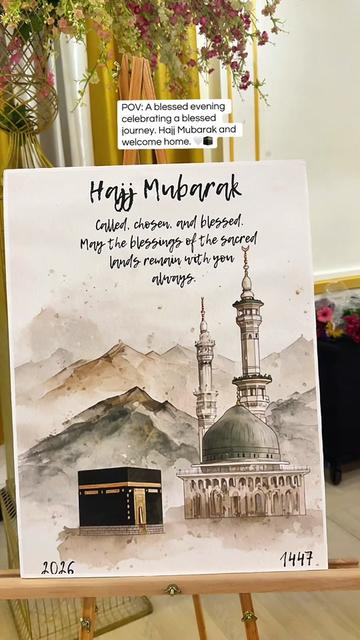 POV: A blessed evening
celebrating a blessed
journey. Hajj Mubarak and
welcome home. 🤍🕋
Hajj Mubarak
Called, chosen, and blessed.
May the blessings of the sacred
lands remain with you
always.
2026
1447